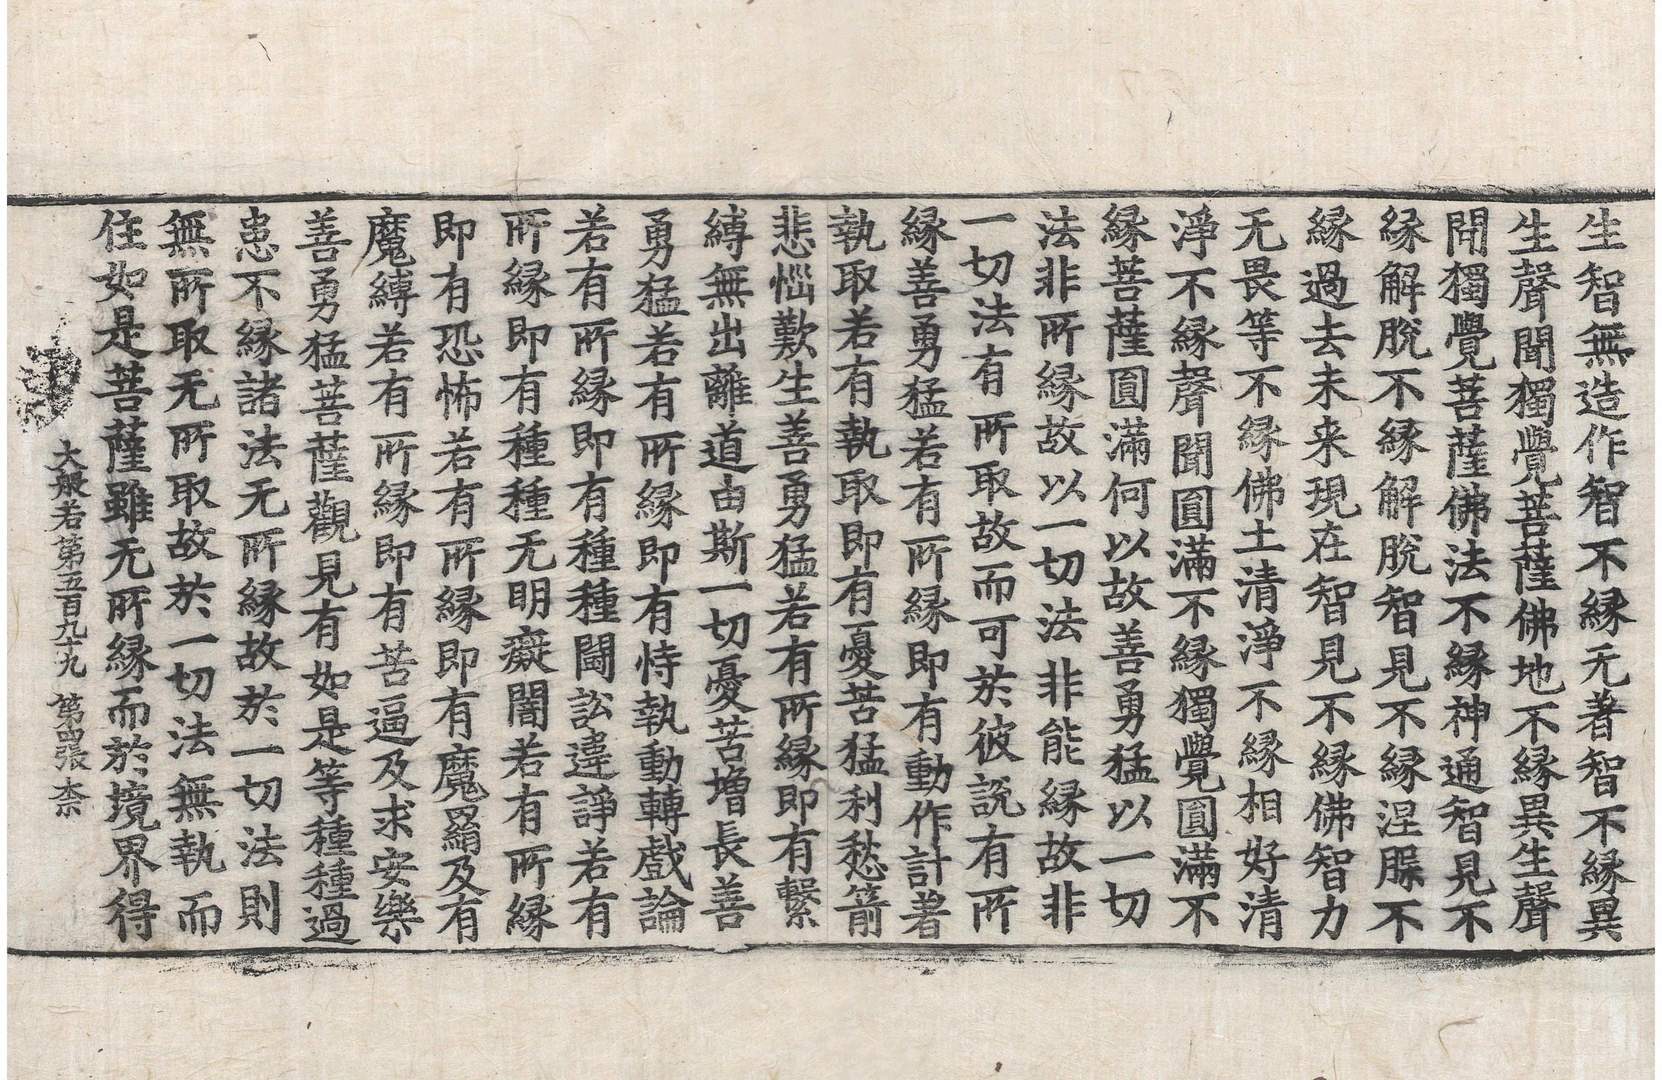 生智無造作智不縁无著智不縁異
生聲聞獨覺菩薩佛地不縁異生聲
聞獨覺菩薩佛法不縁神通智見不
縁解脫不縁解脫智見不縁涅槃不
縁過去未来現在智見不縁佛智力
无畏等不縁佛土清淨不縁相好清
淨不縁聲聞圓滿不縁獨覺圓滿不
縁菩薩圓滿何以故善勇猛以一切
法非所縁故以一切法非能縁故非
一切法有所取故而可於彼說有所
縁善勇猛若有所縁即有動作計著
執取若有執取即有憂苦猛利愁箭
悲惱歎生善勇猛若有所縁即有繫
縛無出離道由斯一切憂苦増長善
勇猛若有所縁即有恃執動轉戲論
若有所縁即有種種鬪訟違諍若有
所縁即有種種无明癡闇若有所縁
即有恐怖若有所縁即有魔羂及有
魔縛若有所縁即有苦逼及求安樂
善勇猛菩薩觀見有如是等種種過
患不縁諸法无所縁故於一切法則
無所取无所取故於一切法無執而
住如是菩薩雖无所縁而於境界得
大般若第五百九十九　第四張　柰